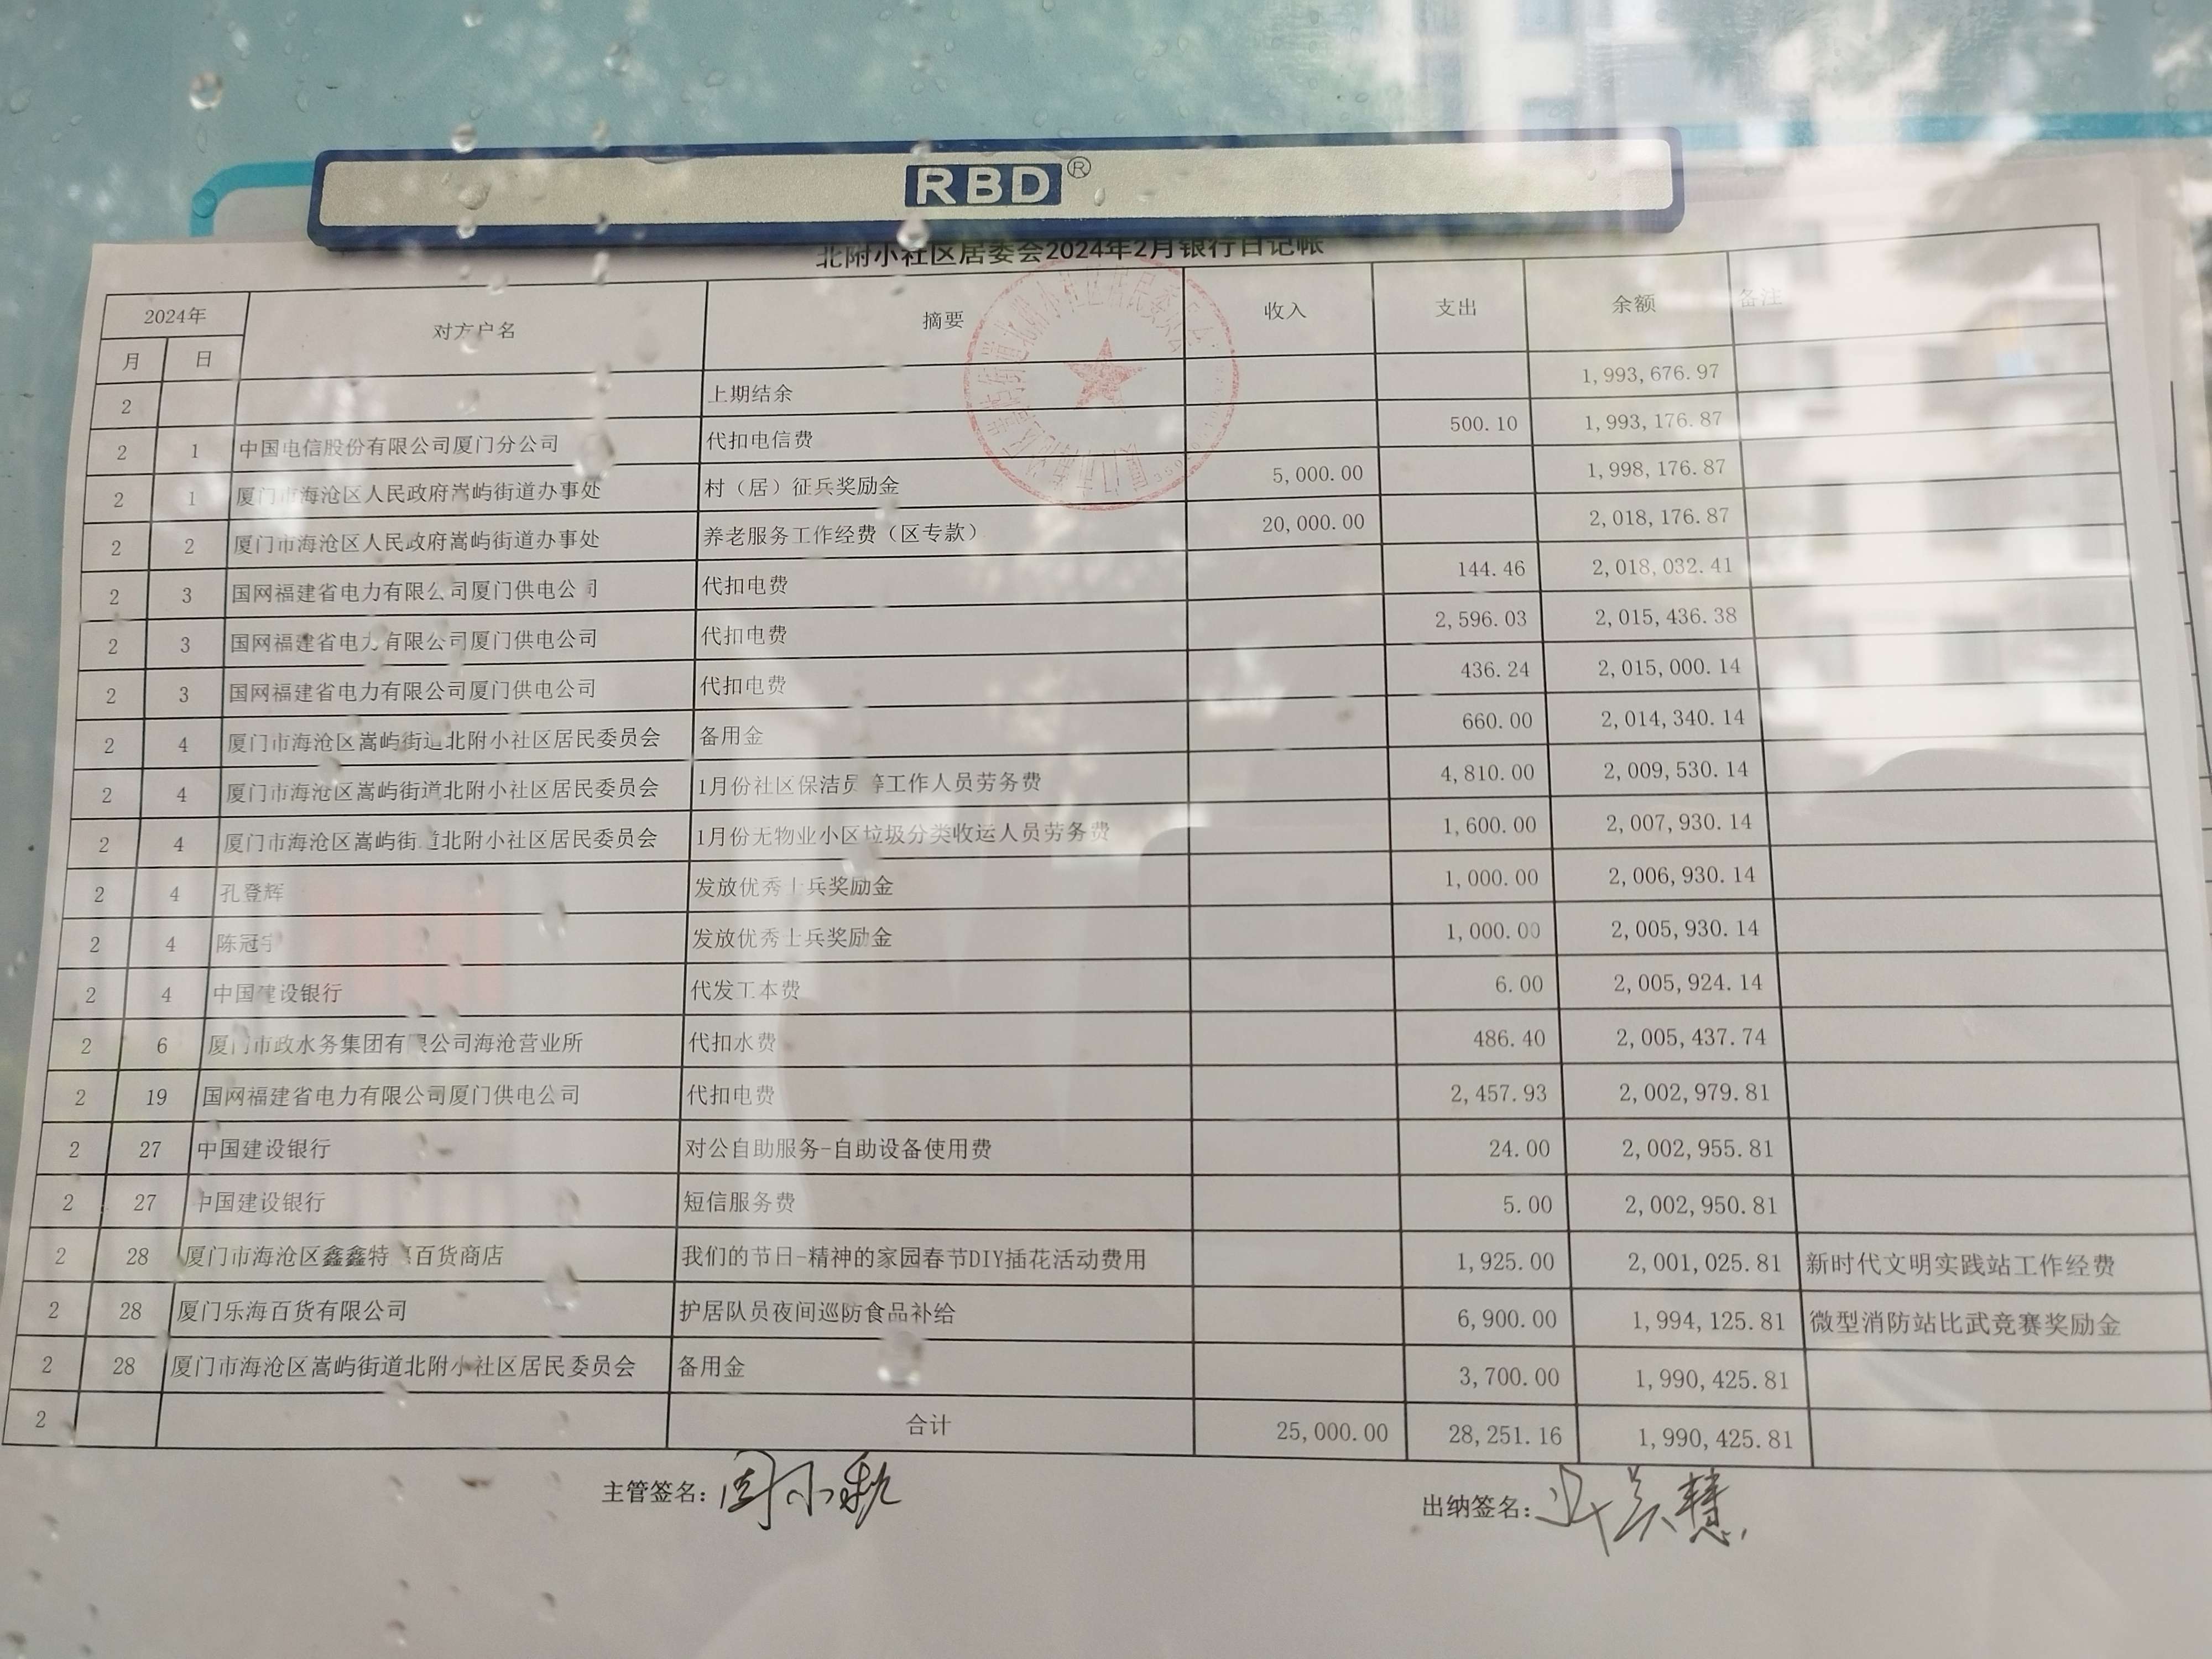 RBD®
北附小社区居委会2024年2月银行日记帐
2024年 对方户名 摘要 收入 支出 余额 备注
月 日
2 上期结余 1,993,676.97
2 1 中国电信股份有限公司厦门分公司 代扣电信费 500.10 1,993,176.87
2 1 厦门市海沧区人民政府嵩屿街道办事处 村（居）征兵奖励金 5,000.00 1,998,176.87
2 2 厦门市海沧区人民政府嵩屿街道办事处 养老服务工作经费（区专款） 20,000.00 2,018,176.87
2 3 国网福建省电力有限公司厦门供电公司 代扣电费 144.46 2,018,032.41
2 3 国网福建省电力有限公司厦门供电公司 代扣电费 2,596.03 2,015,436.38
2 3 国网福建省电力有限公司厦门供电公司 代扣电费 436.24 2,015,000.14
2 4 厦门市海沧区嵩屿街道北附小社区居民委员会 备用金 660.00 2,014,340.14
2 4 厦门市海沧区嵩屿街道北附小社区居民委员会 1月份社区保洁员等工作人员劳务费 4,810.00 2,009,530.14
2 4 厦门市海沧区嵩屿街道北附小社区居民委员会 1月份无物业小区垃圾分类收运人员劳务费 1,600.00 2,007,930.14
2 4 孔登辉 发放优秀士兵奖励金 1,000.00 2,006,930.14
2 4 陈冠宇 发放优秀士兵奖励金 1,000.00 2,005,930.14
2 4 中国建设银行 代发工本费 6.00 2,005,924.14
2 6 厦门市政水务集团有限公司海沧营业所 代扣水费 486.40 2,005,437.74
2 19 国网福建省电力有限公司厦门供电公司 代扣电费 2,457.93 2,002,979.81
2 27 中国建设银行 对公自助服务-自助设备使用费 24.00 2,002,955.81
2 27 中国建设银行 短信服务费 5.00 2,002,950.81
2 28 厦门市海沧区鑫鑫特惠百货商店 我们的节日-精神的家园春节DIY插花活动费用 1,925.00 2,001,025.81 新时代文明实践站工作经费
2 28 厦门乐海百货有限公司 护居队员夜间巡防食品补给 6,900.00 1,994,125.81 微型消防站比武竞赛奖励金
2 28 厦门市海沧区嵩屿街道北附小社区居民委员会 备用金 3,700.00 1,990,425.81
2 合计 25,000.00 28,251.16 1,990,425.81
主管签名： 周小秋 出纳签名：